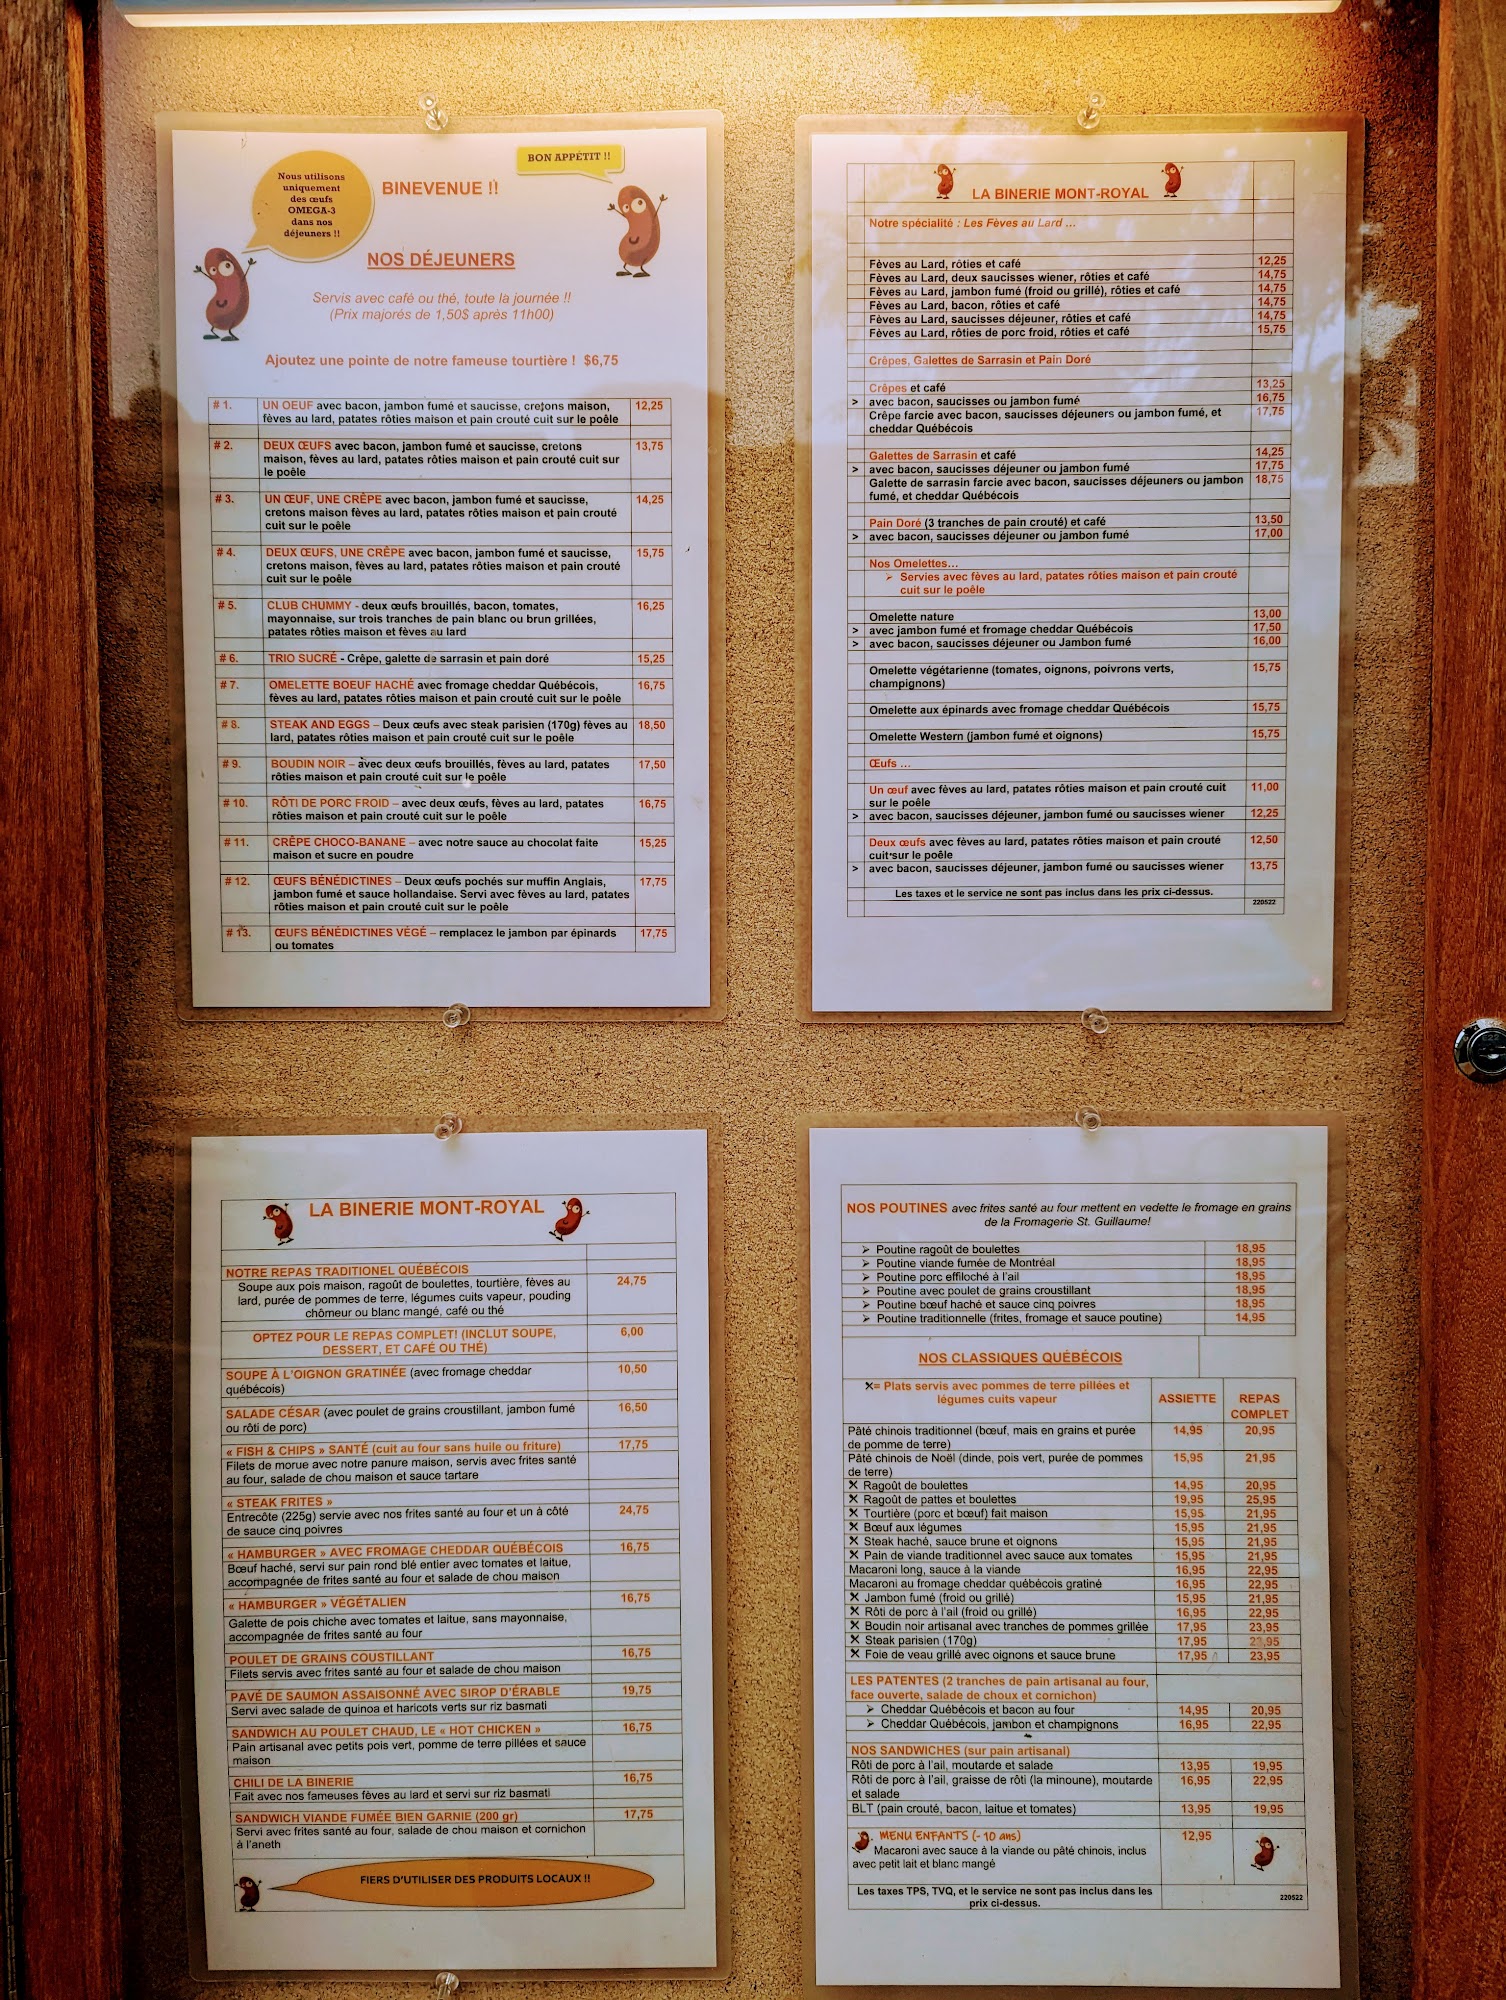 Nous utilisons
uniquement
des œufs
OMEGA-3
dans nos
déjeuners !!
BINEVENUE !!
BON APPÉTIT !!
NOS DÉJEUNERS
Servis avec café ou thé, toute la journée !!
(Prix majorés de 1,50$ après 11h00)
Ajoutez une pointe de notre fameuse tourtière ! $6,75
# 1. UN OEUF avec bacon, jambon fumé et saucisse, cretons maison, 12,25
fèves au lard, patates rôties maison et pain crouté cuit sur le poêle
# 2. DEUX ŒUFS avec bacon, jambon fumé et saucisse, cretons 13,75
maison, fèves au lard, patates rôties maison et pain crouté cuit sur
le poêle
# 3. UN ŒUF, UNE CRÊPE avec bacon, jambon fumé et saucisse, 14,25
cretons maison fèves au lard, patates rôties maison et pain crouté
cuit sur le poêle
# 4. DEUX ŒUFS, UNE CRÊPE avec bacon, jambon fumé et saucisse, 15,75
cretons maison, fèves au lard, patates rôties maison et pain crouté
cuit sur le poêle
# 5. CLUB CHUMMY - deux œufs brouillés, bacon, tomates, 16,25
mayonnaise, sur trois tranches de pain blanc ou brun grillées,
patates rôties maison et fèves au lard
# 6. TRIO SUCRÉ - Crêpe, galette de sarrasin et pain doré 15,25
# 7. OMELETTE BOEUF HACHÉ avec fromage cheddar Québécois, 16,75
fèves au lard, patates rôties maison et pain crouté cuit sur le poêle
# 8. STEAK AND EGGS – Deux œufs avec steak parisien (170g) fèves au 18,50
lard, patates rôties maison et pain crouté cuit sur le poêle
# 9. BOUDIN NOIR – avec deux œufs brouillés, fèves au lard, patates 17,50
rôties maison et pain crouté cuit sur le poêle
# 10. RÔTI DE PORC FROID – avec deux œufs, fèves au lard, patates 16,75
rôties maison et pain crouté cuit sur le poêle
# 11. CRÊPE CHOCO-BANANE – avec notre sauce au chocolat faite 15,25
maison et sucre en poudre
# 12. ŒUFS BÉNÉDICTINES – Deux œufs pochés sur muffin Anglais, 17,75
jambon fumé et sauce hollandaise. Servi avec fèves au lard, patates
rôties maison et pain crouté cuit sur le poêle
# 13. ŒUFS BÉNÉDICTINES VÉGÉ – remplacez le jambon par épinards 17,75
ou tomates
LA BINERIE MONT-ROYAL
Notre spécialité : Les Fèves au Lard ...
Fèves au Lard, rôties et café 12,25
Fèves au Lard, deux saucisses wiener, rôties et café 14,75
Fèves au Lard, jambon fumé (froid ou grillé), rôties et café 14,75
Fèves au Lard, bacon, rôties et café 14,75
Fèves au Lard, saucisses déjeuner, rôties et café 14,75
Fèves au Lard, rôties de porc froid, rôties et café 15,75
Crêpes, Galettes de Sarrasin et Pain Doré
Crêpes et café 13,25
> avec bacon, saucisses ou jambon fumé 16,75
Crêpe farcie avec bacon, saucisses déjeuners ou jambon fumé, et 17,75
cheddar Québécois
Galettes de Sarrasin et café 14,25
> avec bacon, saucisses déjeuner ou jambon fumé 17,75
Galette de sarrasin farcie avec bacon, saucisses déjeuners ou jambon 18,75
fumé, et cheddar Québécois
Pain Doré (3 tranches de pain crouté) et café 13,50
> avec bacon, saucisses déjeuner ou jambon fumé 17,00
Nos Omelettes...
➢ Servies avec fèves au lard, patates rôties maison et pain crouté
cuit sur le poêle
Omelette nature 13,00
> avec jambon fumé et fromage cheddar Québécois 17,50
> avec bacon, saucisses déjeuner ou Jambon fumé 16,00
Omelette végétarienne (tomates, oignons, poivrons verts, 15,75
champignons)
Omelette aux épinards avec fromage cheddar Québécois 15,75
Omelette Western (jambon fumé et oignons) 15,75
Œufs ...
Un œuf avec fèves au lard, patates rôties maison et pain crouté cuit 11,00
sur le poêle
> avec bacon, saucisses déjeuner, jambon fumé ou saucisses wiener 12,25
Deux œufs avec fèves au lard, patates rôties maison et pain crouté 12,50
cuit sur le poêle
> avec bacon, saucisses déjeuner, jambon fumé ou saucisses wiener 13,75
Les taxes et le service ne sont pas inclus dans les prix ci-dessus.
220522
LA BINERIE MONT-ROYAL
NOTRE REPAS TRADITIONEL QUÉBÉCOIS
Soupe aux pois maison, ragoût de boulettes, tourtière, fèves au 24,75
lard, purée de pommes de terre, légumes cuits vapeur, pouding
chômeur ou blanc mangé, café ou thé
OPTEZ POUR LE REPAS COMPLET! (INCLUT SOUPE, 6,00
DESSERT, ET CAFÉ OU THÉ)
SOUPE À L'OIGNON GRATINÉE (avec fromage cheddar 10,50
québécois)
SALADE CÉSAR (avec poulet de grains croustillant, jambon fumé 16,50
ou rôti de porc)
« FISH & CHIPS » SANTÉ (cuit au four sans huile ou friture) 17,75
Filets de morue avec notre panure maison, servis avec frites santé
au four, salade de chou maison et sauce tartare
« STEAK FRITES »
Entrecôte (225g) servie avec nos frites santé au four et un à côté 24,75
de sauce cinq poivres
« HAMBURGER » AVEC FROMAGE CHEDDAR QUÉBÉCOIS 16,75
Bœuf haché, servi sur pain rond blé entier avec tomates et laitue,
accompagnée de frites santé au four et salade de chou maison
« HAMBURGER » VÉGÉTALIEN 16,75
Galette de pois chiche avec tomates et laitue, sans mayonnaise,
accompagnée de frites santé au four
POULET DE GRAINS COUSTILLANT 16,75
Filets servis avec frites santé au four et salade de chou maison
PAVÉ DE SAUMON ASSAISONNÉ AVEC SIROP D'ÉRABLE 19,75
Servi avec salade de quinoa et haricots verts sur riz basmati
SANDWICH AU POULET CHAUD, LE « HOT CHICKEN » 16,75
Pain artisanal avec petits pois vert, pomme de terre pillées et sauce
maison
CHILI DE LA BINERIE 16,75
Fait avec nos fameuses fèves au lard et servi sur riz basmati
SANDWICH VIANDE FUMÉE BIEN GARNIE (200 gr) 17,75
Servi avec frites santé au four, salade de chou maison et cornichon
à l'aneth
FIERS D'UTILISER DES PRODUITS LOCAUX !!
NOS POUTINES avec frites santé au four mettent en vedette le fromage en grains
de la Fromagerie St. Guillaume!
➢ Poutine ragoût de boulettes 18,95
➢ Poutine viande fumée de Montréal 18,95
➢ Poutine porc effiloché à l'ail 18,95
➢ Poutine avec poulet de grains croustillant 18,95
➢ Poutine bœuf haché et sauce cinq poivres 18,95
➢ Poutine traditionnelle (frites, fromage et sauce poutine) 14,95
NOS CLASSIQUES QUÉBÉCOIS
✕= Plats servis avec pommes de terre pillées et ASSIETTE REPAS
légumes cuits vapeur COMPLET
Pâté chinois traditionnel (bœuf, mais en grains et purée 14,95 20,95
de pomme de terre)
Pâté chinois de Noël (dinde, pois vert, purée de pommes 15,95 21,95
de terre)
✕ Ragoût de boulettes 14,95 20,95
✕ Ragoût de pattes et boulettes 19,95 25,95
✕ Tourtière (porc et bœuf) fait maison 15,95 21,95
✕ Bœuf aux légumes 15,95 21,95
✕ Steak haché, sauce brune et oignons 15,95 21,95
✕ Pain de viande traditionnel avec sauce aux tomates 15,95 21,95
Macaroni long, sauce à la viande 16,95 22,95
Macaroni au fromage cheddar québécois gratiné 16,95 22,95
✕ Jambon fumé (froid ou grillé) 15,95 21,95
✕ Rôti de porc à l'ail (froid ou grillé) 16,95 22,95
✕ Boudin noir artisanal avec tranches de pommes grillée 17,95 23,95
✕ Steak parisien (170g) 17,95 23,95
✕ Foie de veau grillé avec oignons et sauce brune 17,95 23,95
LES PATENTES (2 tranches de pain artisanal au four,
face ouverte, salade de choux et cornichon)
➢ Cheddar Québécois et bacon au four 14,95 20,95
➢ Cheddar Québécois, jambon et champignons 16,95 22,95
NOS SANDWICHES (sur pain artisanal)
Rôti de porc à l'ail, moutarde et salade 13,95 19,95
Rôti de porc à l'ail, graisse de rôti (la minoune), moutarde 16,95 22,95
et salade
BLT (pain crouté, bacon, laitue et tomates) 13,95 19,95
MENU ENFANTS (- 10 ans) 12,95
Macaroni avec sauce à la viande ou pâté chinois, inclus
avec petit lait et blanc mangé
Les taxes TPS, TVQ, et le service ne sont pas inclus dans les
prix ci-dessus.
220522